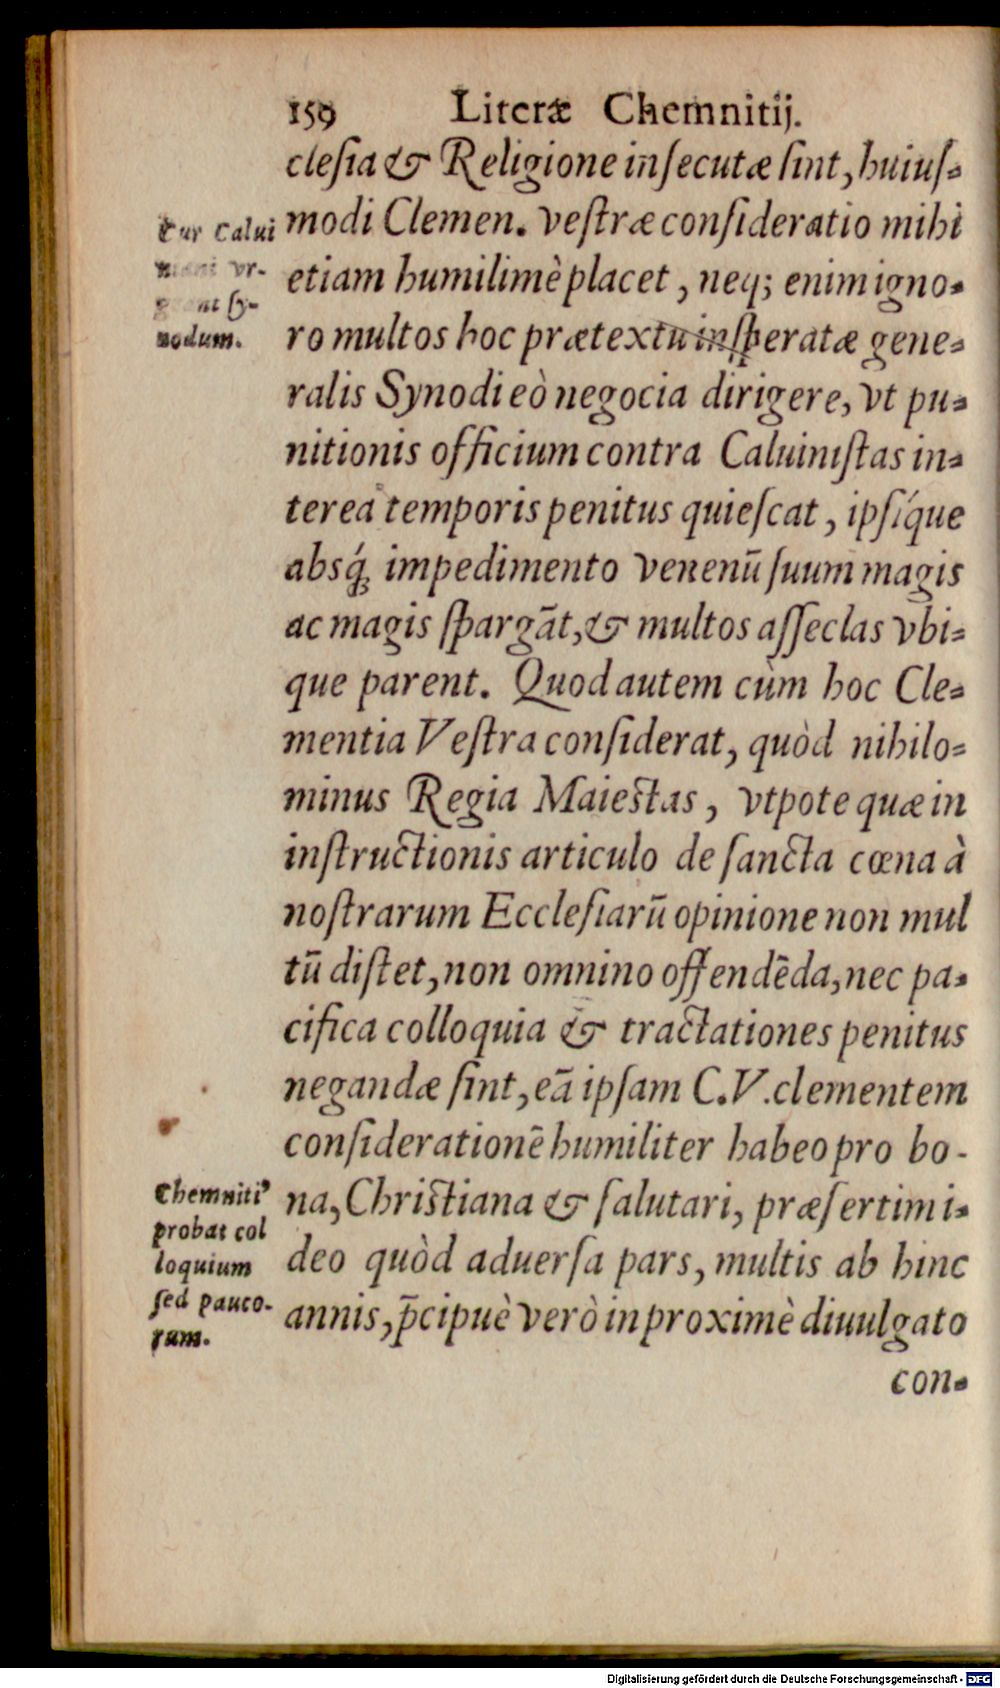 159 Literæ Chemnitij.
clesia & Religione insecutæ sint, huius-
modi Clemen. vestræ consideratio mihi
etiam humilimè placet, neq; enim igno-
ro multos hoc prætextu insperatæ gene-
ralis Synodi eò negocia dirigere, vt pu-
nitionis officium contra Caluinistas in-
terea temporis penitus quiescat, ipsíque
absq́; impedimento venenū suum magis
ac magis spargāt, & multos asseclas vbi-
que parent. Quod autem cùm hoc Cle-
mentia Vestra considerat, quòd nihilo-
minus Regia Maiestas, vtpote quæ in
instructionis articulo de sancta cœna à
nostrarum Ecclesiarū opinione non mul
tū distet, non omnino offendēda, nec pa-
cifica colloquia & tractationes penitus
negandæ sint, eā ipsam C. V. clementem
considerationē humiliter habeo pro bo-
na, Christiana & salutari, præsertim i-
deo quòd aduersa pars, multis ab hinc
annis, p̄cipuè verò in proximè diuulgato
con-
Cur Calui
vr-
sy-
nodum.
Chemniti⁹
probat col
loquium
sed pauco-
rum.
Digitalisierung gefördert durch die Deutsche Forschungsgemeinschaft - DFG